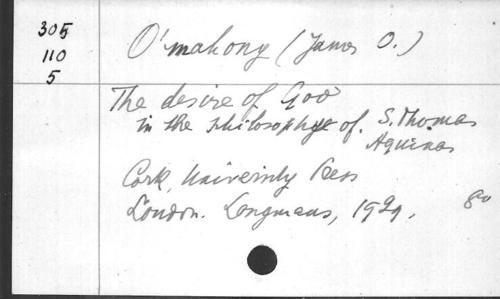 305
110
5
O'mahony (James O.)
The desire of God
in the philosophye of S. Thomas
Aquinas
Cork, University Press
London. Longmans, 1929. 8o